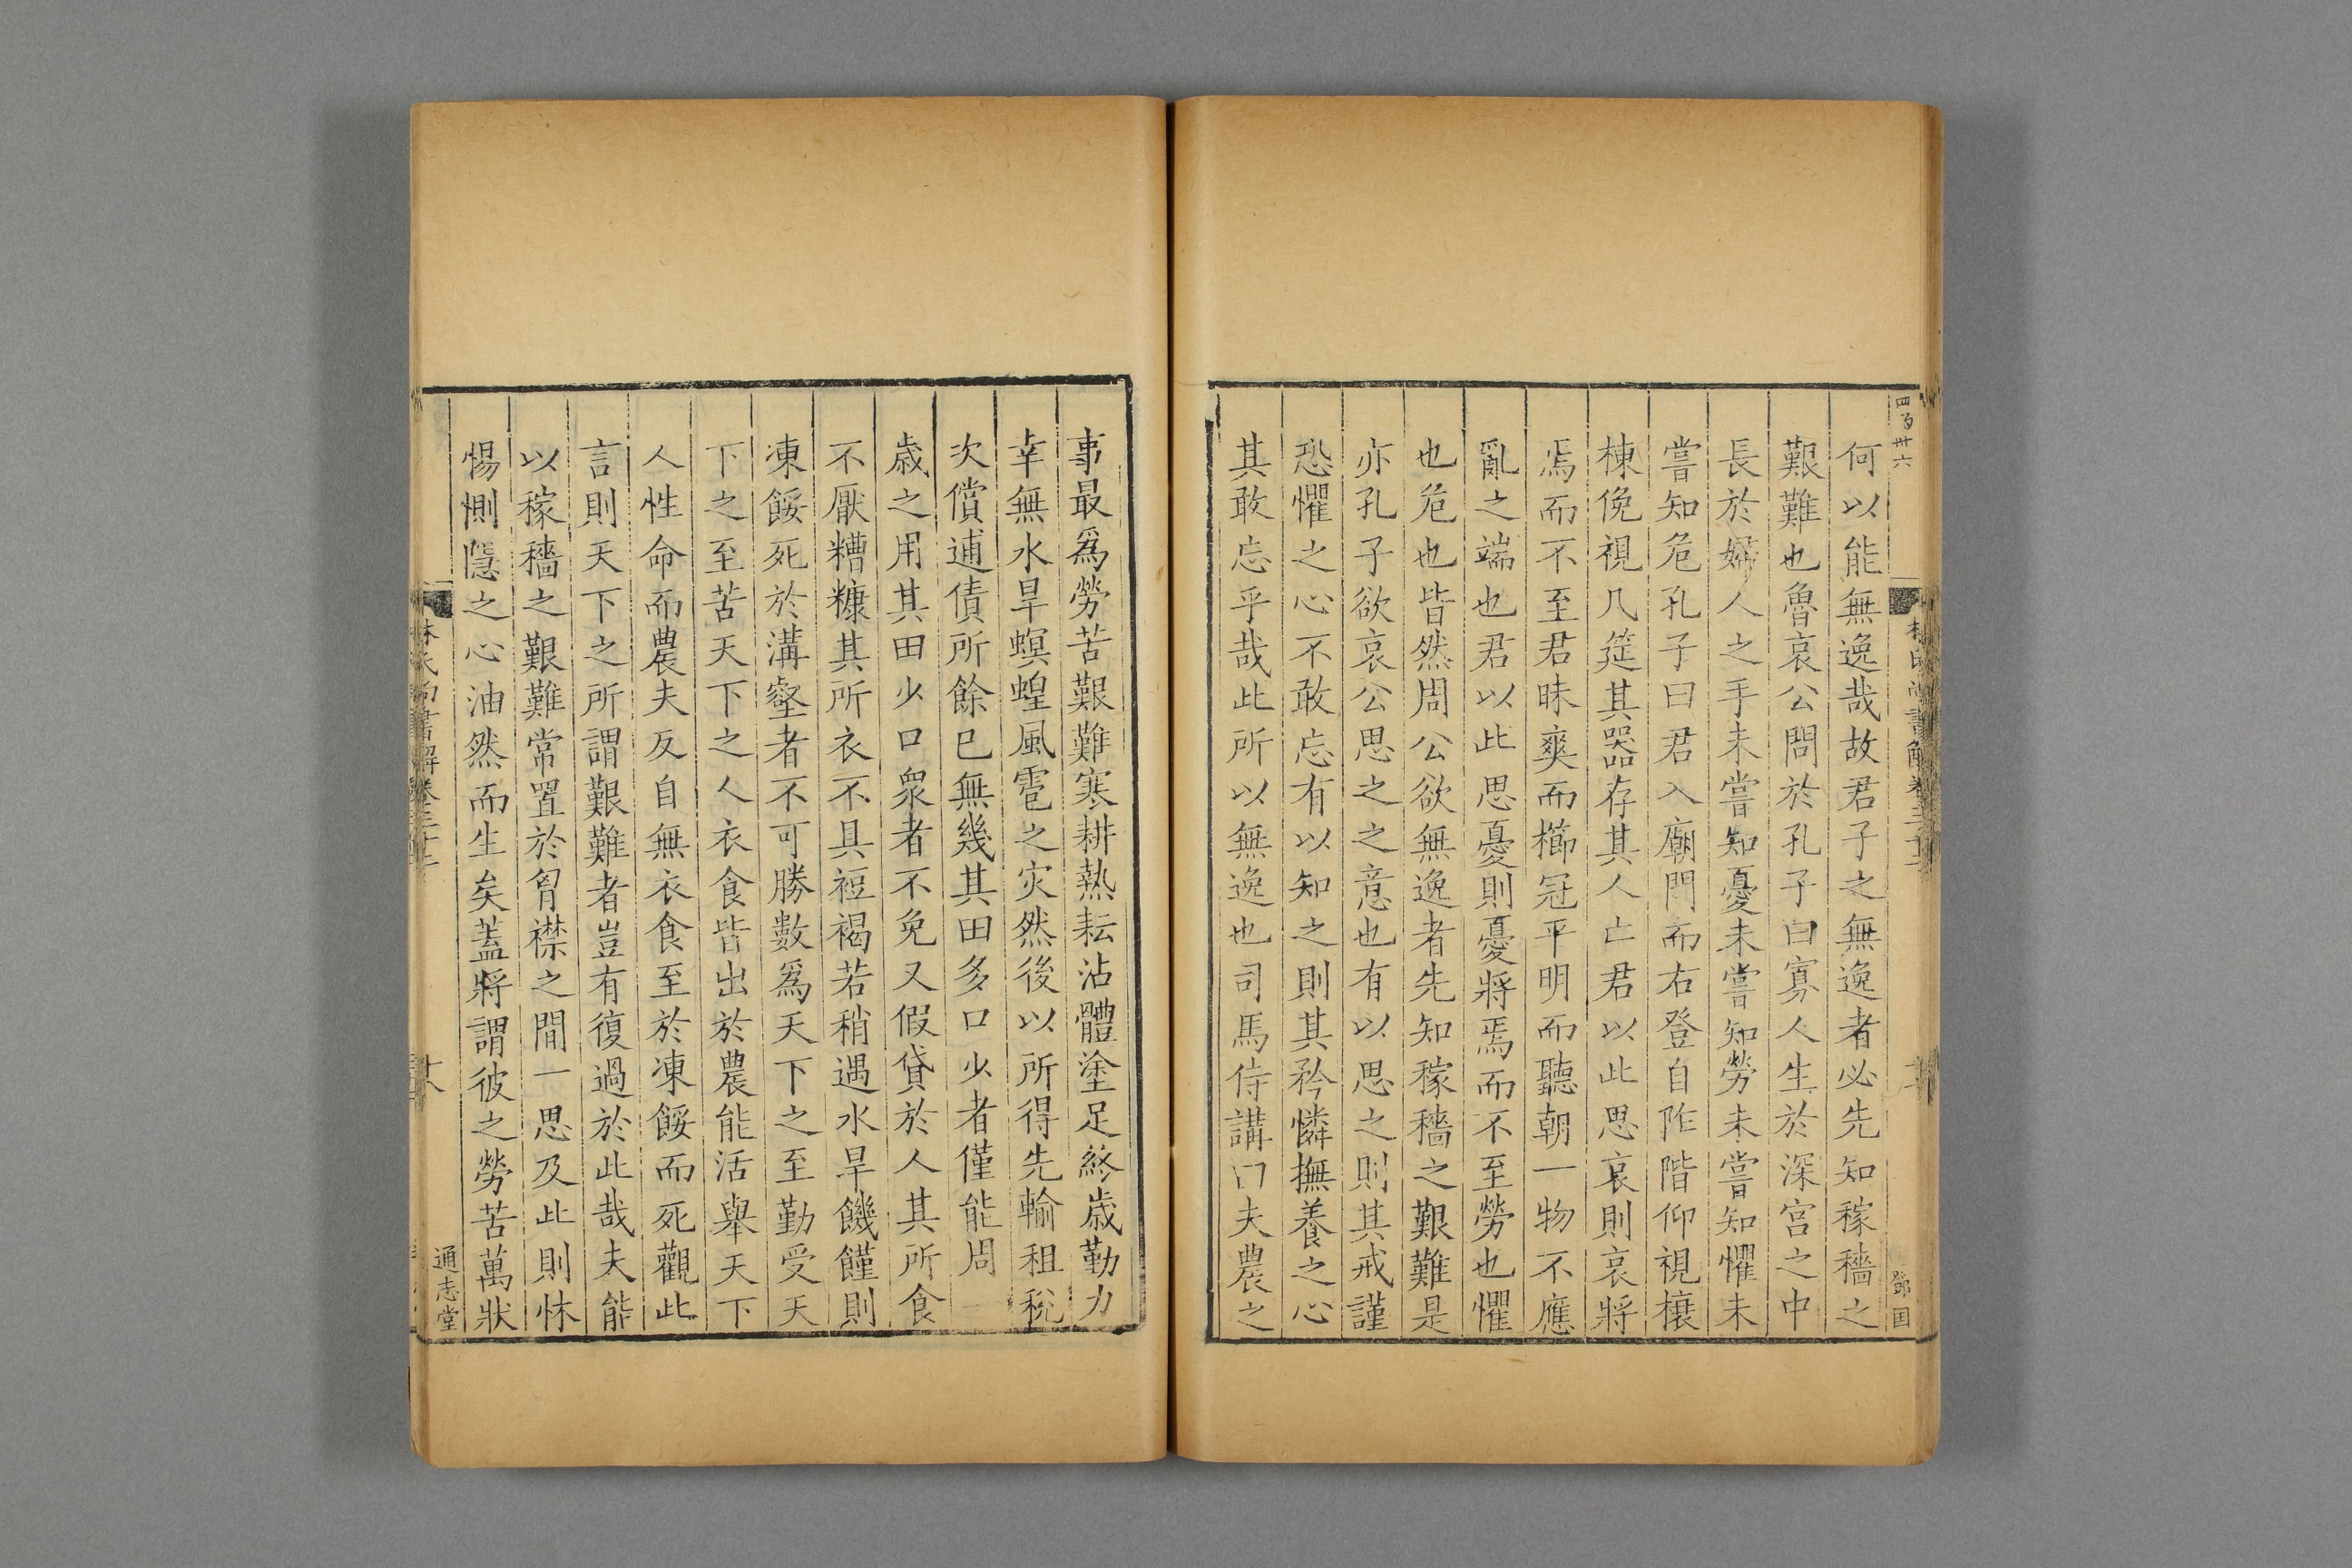 四百卅六
何以能無逸哉故君子之無逸者必先知稼穡之
艱難也魯哀公問於孔子曰寡人生於深宮之中
長於婦人之手未嘗知憂未嘗知勞未嘗知懼未
嘗知危孔子曰君入廟門而右登自阼階仰視榱
棟俛視几筵其器存其人亡君以此思哀則哀將
焉而不至君昧爽而櫛冠平明而聽朝一物不應
亂之端也君以此思憂則憂將焉而不至勞也懼
也危也皆然周公欲無逸者先知稼穡之艱難是
亦孔子欲哀公思之之意也有以思之則其戒謹
恐懼之心不敢忘有以知之則其矜憐撫養之心
其敢忘乎哉此所以無逸也司馬侍講曰夫農之
事最爲勞苦艱難寒耕熱耘沾體塗足終歲勤力
幸無水旱螟蝗風雹之灾然後以所得先輸租稅
次償逋債所餘已無幾其田多口少者僅能周一
歲之用其田少口衆者不免又假貸於人其所食
不厭糟糠其所衣不具裋褐若稍遇水旱饑饉則
凍餒死於溝壑者不可勝數爲天下之至勤受天
下之至苦天下之人衣食皆出於農能活舉天下
人性命而農夫反自無衣食至於凍餒而死觀此
言則天下之所謂艱難者豈有復過於此哉夫能
以稼穡之艱難常置於胷襟之間一思及此則怵
惕惻隱之心油然而生矣蓋將謂彼之勞苦萬狀
林氏尚書解卷三十二
十八
通志堂